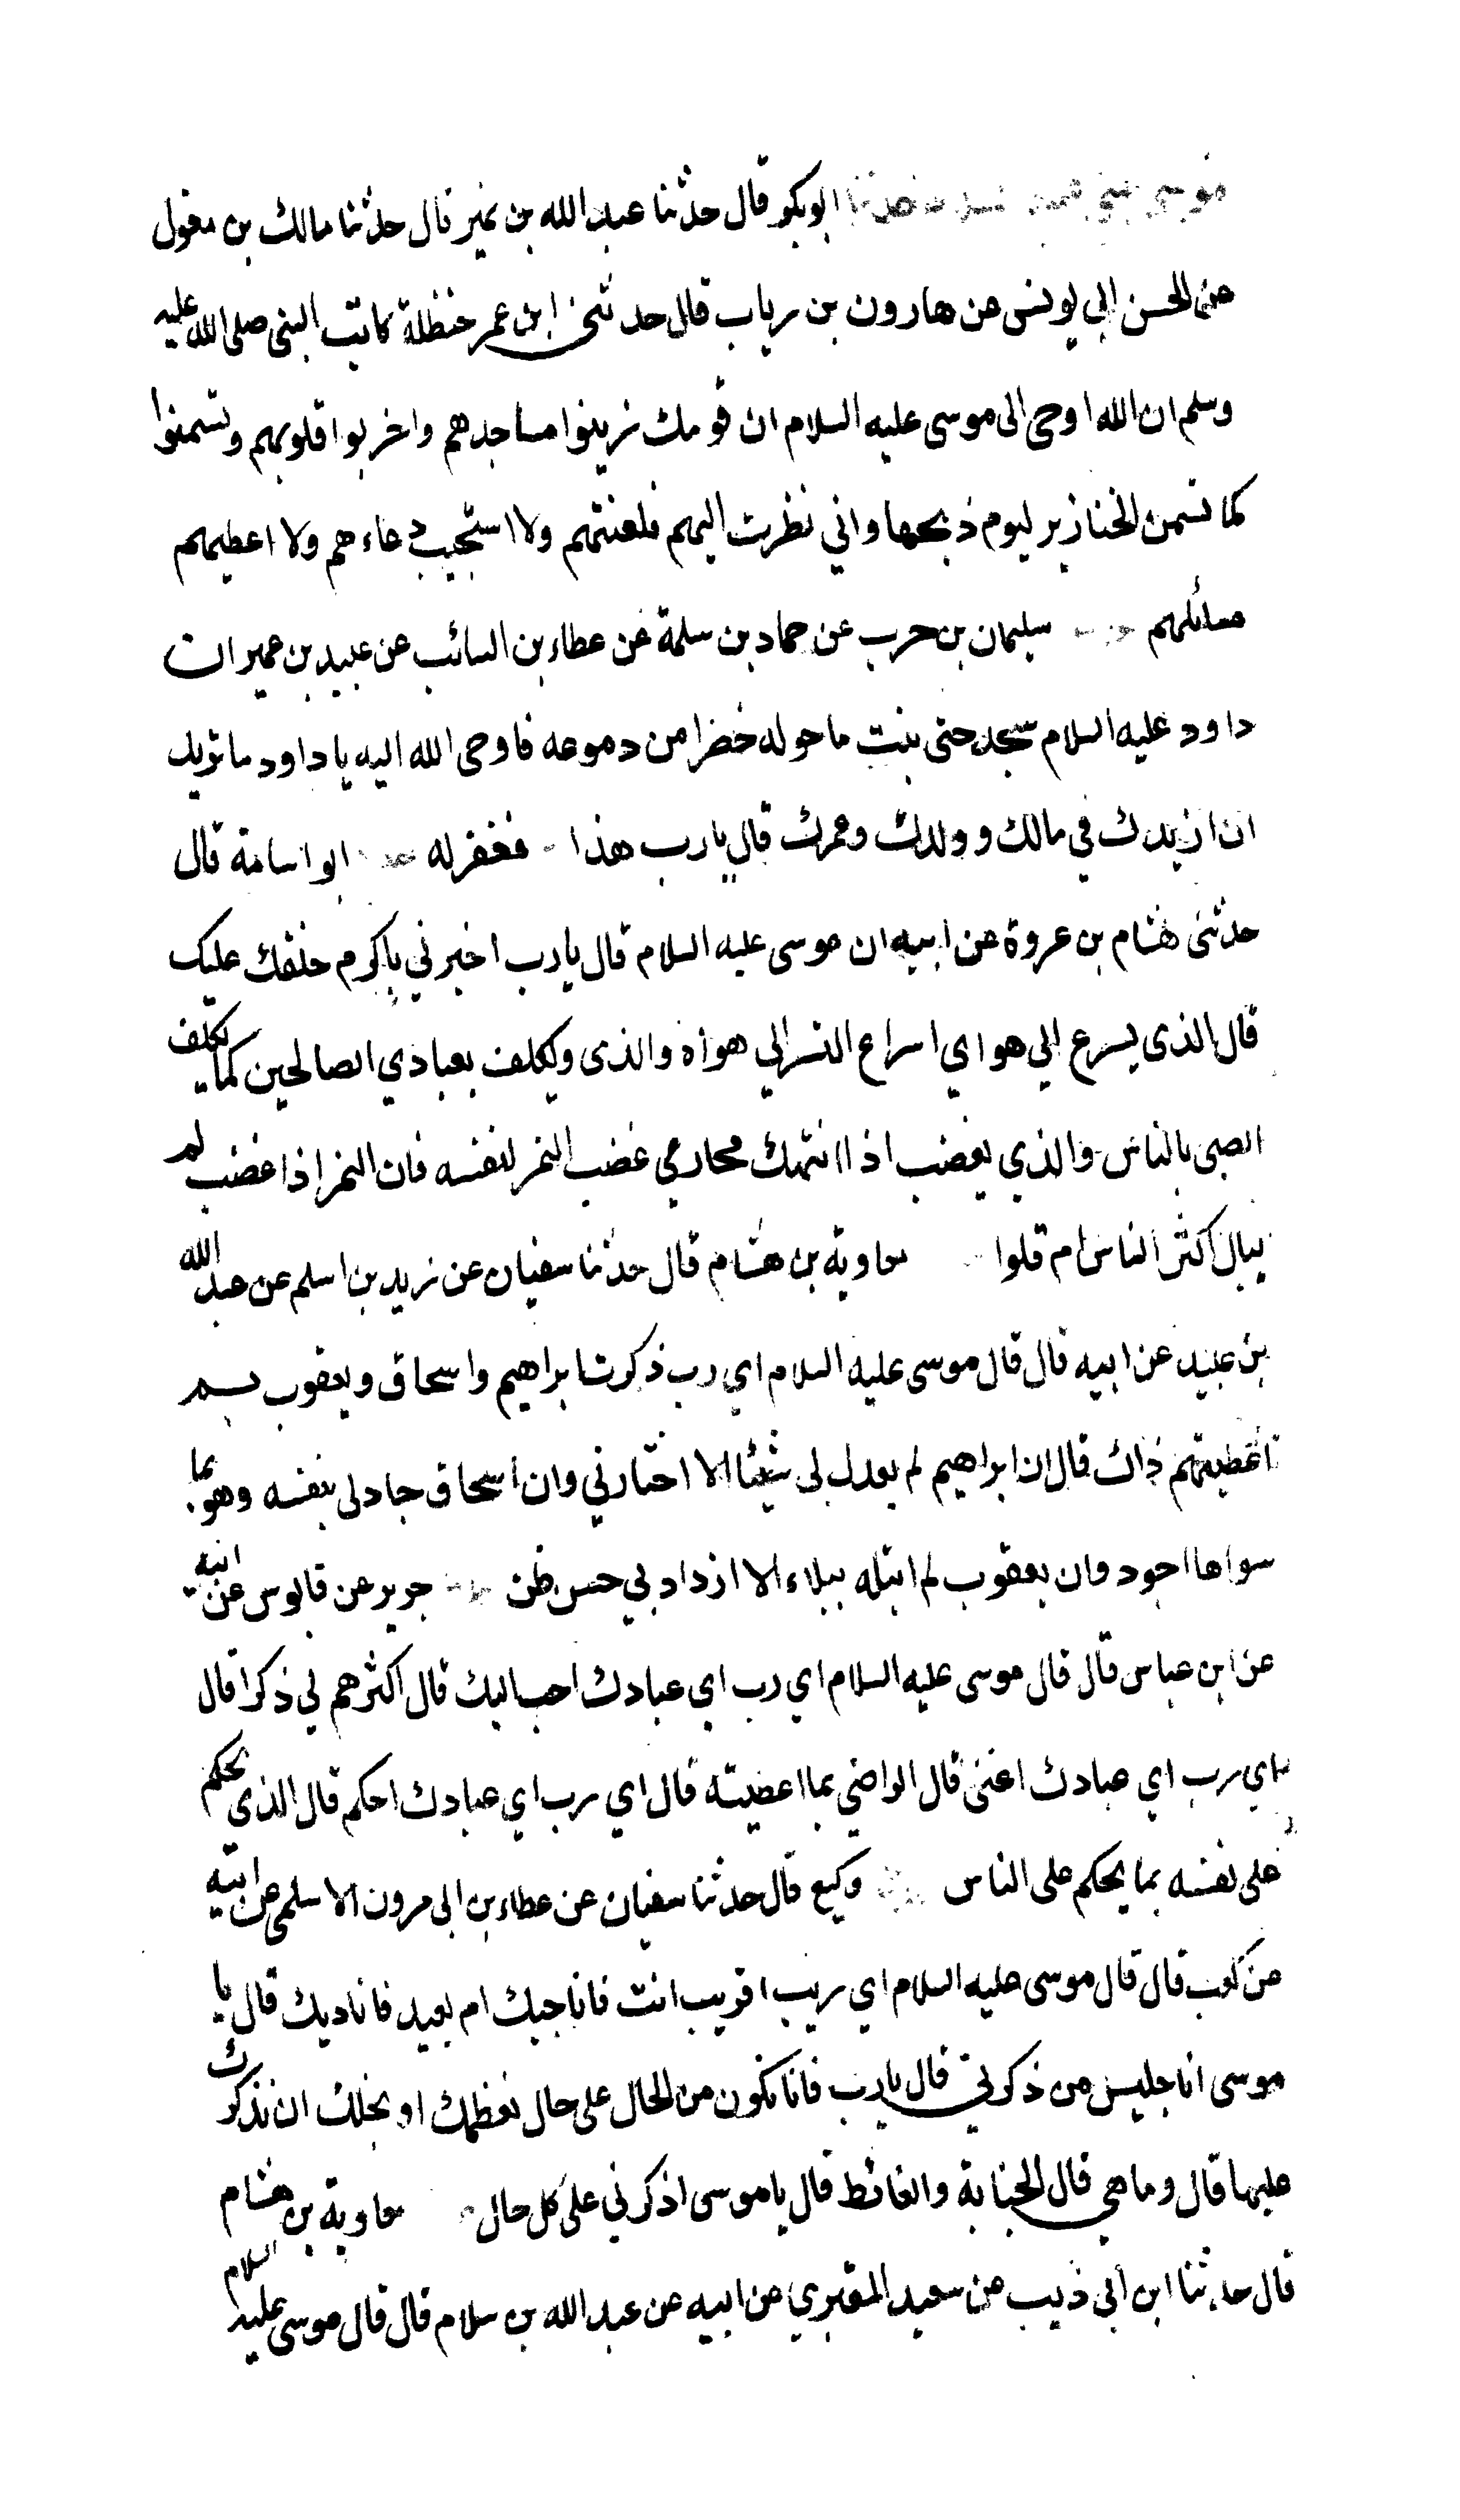 ابوبكر قال حدثنا عبد الله بن نمير قال حدثنا مالك بن مغول
عن الحسن ابي يونس عن هارون بن رباب قال حدثني ابن عمر حنظلة كاتب النبي صلى الله عليه
وسلم ان الله اوحى الى موسى عليه السلام ان قومك زينوا مساجدهم واخربوا قلوبهم وتسمنوا
كما تسمن الخنازير ليوم ذبحها واني نظرت اليهم فلعنتهم ولا استجيب دعاءهم ولا اعطيهم
مسائلهم سليمان بن حرب عن حماد بن سلمة عن عطاء بن السائب عن عبيد بن عمير ان
داود عليه السلام سجد حتى نبت ما حوله خضرا من دموعه فاوحى الله اليه يا داود ما تريد
ان ازيدك في مالك وولدك وعمرك قال يا رب هذا فغفر له ابو اسامة قال
حدثني هشام بن عروة عن ابيه ان موسى عليه السلام قال يا رب اخبرني باكرم خلقك عليك
قال الذي يسرع الي هواي اسراع النسر الي هواه والذى وليكلف بعبادي الصالحين كما يكلف
الصبى بالناس والذي يغضب اذا انتهك محارمي غضب النمر لنفسه فان النمر اذا غضب لم
يبال اكثر الناس ام قلوا معاوية بن هشام قال حدثنا سفيان عن زيد بن اسلم عن عبد الله
بن عبيد عن ابيه قال قال موسى عليه السلام اي رب ذكرت ابراهيم واسحاق ويعقوب بسم
اعطيتهم ذاك قال ان ابراهيم لم يعدل لى شيئا الا اختارني وان اسحاق جاد لى بنفسه وهو بما
سواها اجود وان يعقوب لم ابتله ببلاء الا ازداد بي حسن ظن جرير عن قابوس عن ابيه
عن ابن عباس قال قال موسى عليه السلام اي رب اي عبادك احب اليك قال اكثرهم لي ذكرا قال
اي رب اي عبادك اغنى قال الراضي بما اعطيته قال اي رب اي عبادك احكم قال الذى يحكم
على نفسه بما يحكم على الناس وكيع قال حدثنا سفيان عن عطاء بن ابي مرون الاسلمى عن ابيه
عن كعب قال قال موسى عليه السلام اي رب اقريب انت فاناجيك ام بعيد فاناديك قال يا
موسى انا جليس من ذكرني قال يا رب فانا نكون من الحال على حال نعظمك او نجلك ان نذكرك
عليها قال وما هي قال الجنابة والغائط قال يا موسى اذكرني على كل حال معاوية بن هشام
قال حدثنا ابن ابي ذيب عن سعيد المقبري عن ابيه عن عبد الله بن سلام قال قال موسى عليه السلام